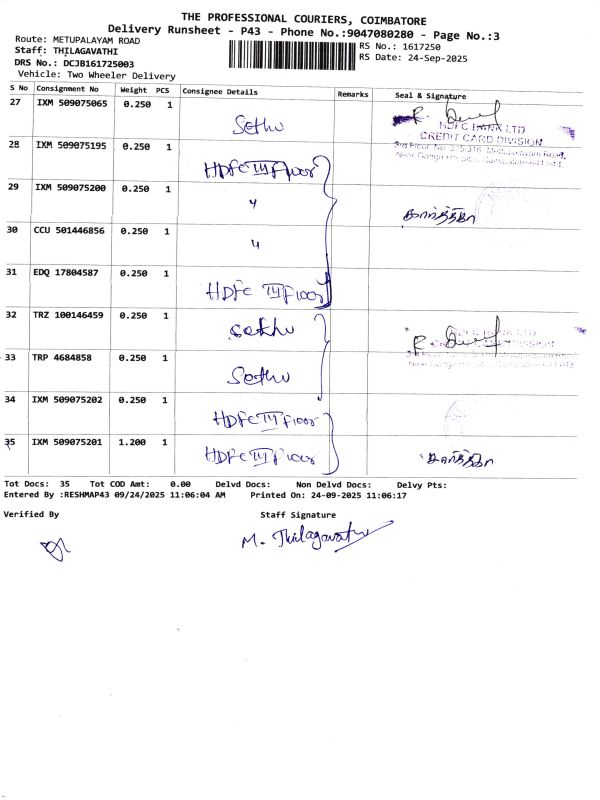 THE PROFESSIONAL COURIERS, COIMBATORE
Delivery Runsheet - P43 - Phone No.:9047080280 - Page No.:3
Route: METUPALAYAM ROAD
RS No.: 1617250
Staff: THILAGAVATHI
RS Date: 24-Sep-2025
DRS No.: DCJB161725003
Vehicle: Two Wheeler Delivery
S No Consignment No Weight PCS Consignee Details Remarks Seal & Signature
27 IXM 509075065 0.250 1 Sethu
HDFC BANK LTD
CREDIT CARD DIVISION
28 IXM 509075195 0.250 1 HDFC III Floor
29 IXM 509075200 0.250 1 " கார்த்திகா
30 CCU 501446856 0.250 1 "
31 EDQ 17804587 0.250 1 HDFC III Floor
32 TRZ 100146459 0.250 1 Sethu
33 TRP 4684858 0.250 1 Sethu
34 IXM 509075202 0.250 1 HDFC III Floor
35 IXM 509075201 1.200 1 HDFC III Floor கார்த்திகா
Tot Docs: 35 Tot COD Amt: 0.00 Delvd Docs: Non Delvd Docs: Delvy Pts:
Entered By :RESHMAP43 09/24/2025 11:06:04 AM Printed On: 24-09-2025 11:06:17
Verified By Staff Signature
M. Thilagavathi